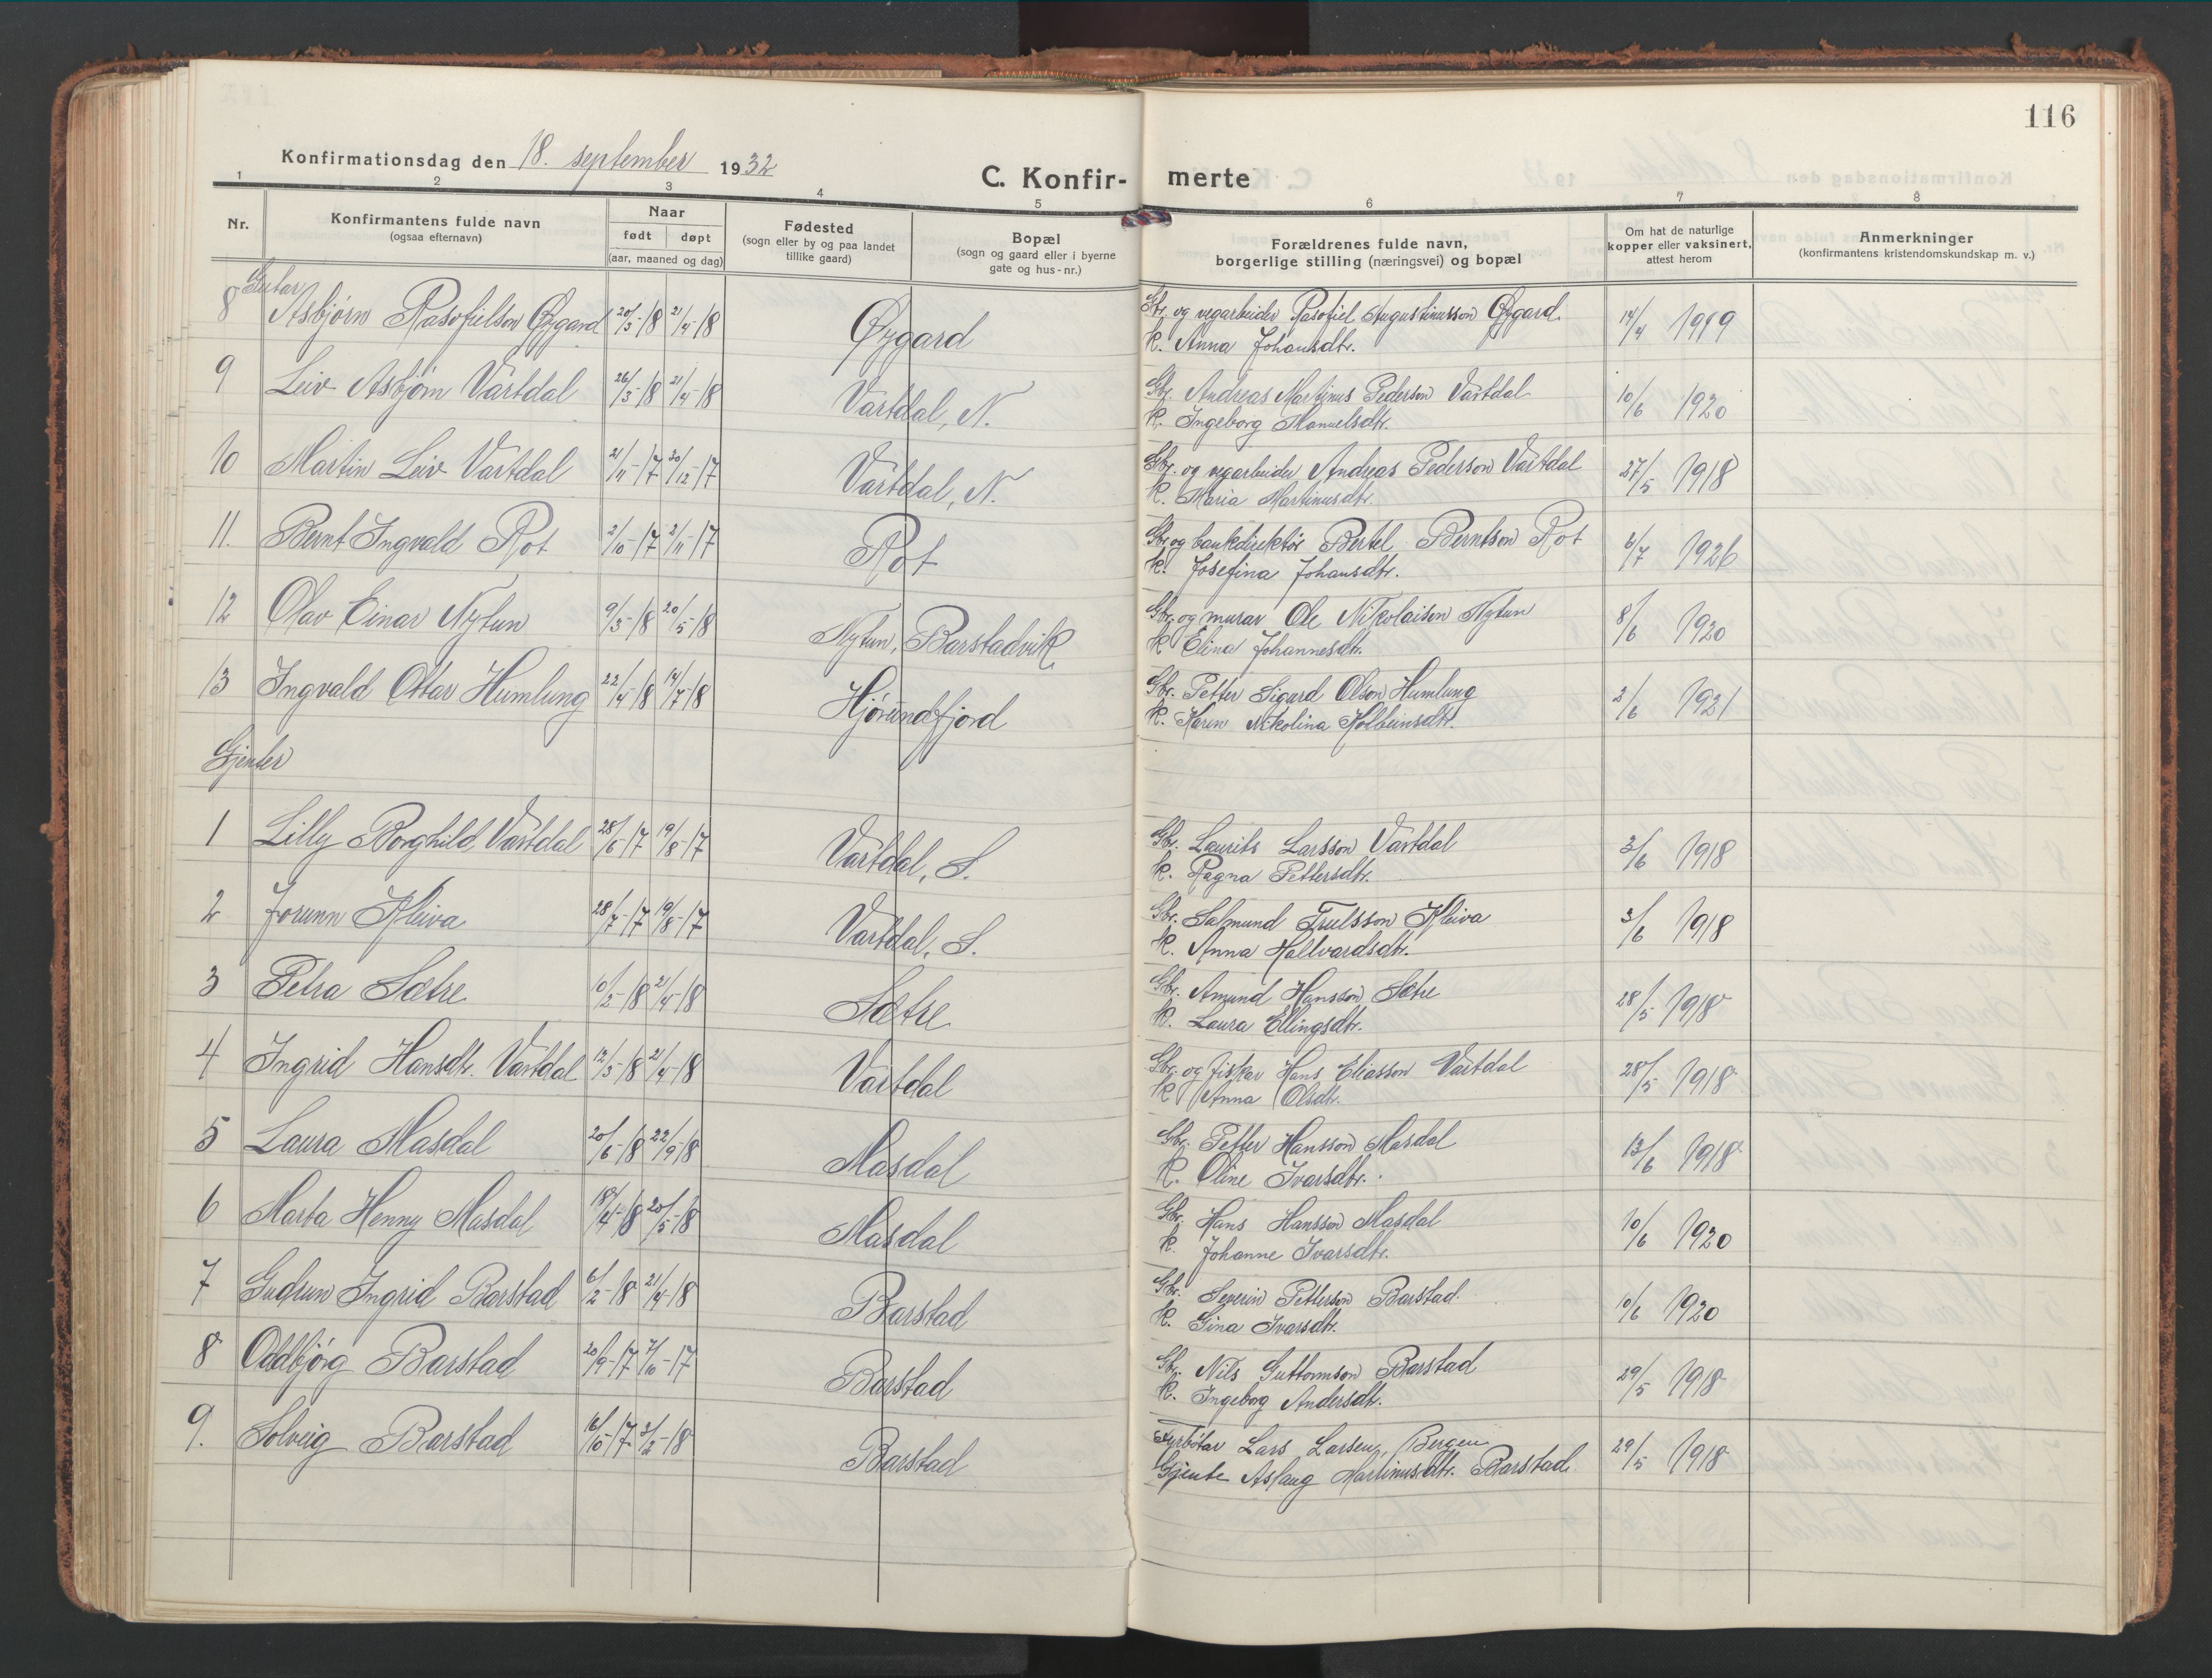 116
Konfirmationsdag den 18. september 1932
C. Konfir- merte
1 2 3 4 5 6 7 8
Nr.
Konfirmantens fulde navn
(ogsaa efternavn)
Naar
født døpt
(aar, maaned og dag)
Fødested
(sogn eller by og paa landet
tillike gaard)
Bopæl
(sogn og gaard eller i byerne
gate og hus-nr.)
Forældrenes fulde navn,
borgerlige stilling (næringsvei) og bopæl
Om hat de naturlige
kopper eller vaksinert,
attest herom
Anmerkninger
(konfirmantens kristendomskundskap m. v.)
Gutar
8 Asbjørn Rasofielson Øygard 20/3-18 21/4-18 Øygard Gbr. og vegarbeider Rasofiel Augustinusson Øygard 14/4 1919
k. Anna Johansdtr.
9 Leiv Asbjørn Vartdal 26/3-18 21/4-18 Vartdal, N. Gbr. Andreas Martinus Pederson Vartdal 10/6 1920
k. Ingeborg Manuelsdtr.
10 Martin Leiv Vartdal 21/11-17 20/12-17 Vartdal, N. Gbr. og vegarbeider Andreas Pederson Vartdal 27/5 1918
k. Maria Martinusdtr.
11. Bernt Ingvald Rot 2/10-17 2/11-17 Rot Gbr. og bankdirektør Bertel Berntson Rot 6/7 1926
k. Josefina Johansdtr.
12 Olav Einar Nytun 9/3-18 20/5-18 Nytun, Barstadvik Gbr. og murar Ole Nikolaisen Nytun 8/6 1920
k. Elina Johannesdtr.
13 Ingvald Ottar Humlung 22/4-18 14/7-18 Hjørundfjord Gbr. Petter Sigurd Olson Humlung 2/6 1921
k. Karen Nikolina Kolbeinsdtr.
Gjenter
1 Lilly Borghild Vartdal 28/6-17 19/8-17 Vartdal, S. Gbr. Laurits Larsson Vartdal 3/6 1918
k. Ragna Pettersdtr.
2 Jorunn Kleiva 28/7-17 19/8-17 Vartdal, S. Gbr. Salmund Trulsson Kleiva 3/6 1918
k. Anna Hallvardsdtr.
3 Petra Sætre 10/2-18 21/4-18 Sætre Gbr. Amund Hansson Sætre 28/5 1918
k. Laura Ellingsdtr.
4 Ingrid Hansdtr. Vartdal 12/3-18 21/4-18 Vartdal Gbr. og fiskar Hans Eliasson Vartdal 28/5 1918
k. Anna Olsdtr.
5 Laura Masdal 20/6-18 22/9-18 Masdal Gbr. Petter Hansson Masdal 12/6 1918
k. Oline Ivarsdtr.
6 Marta Henny Masdal 18/4-18 20/5-18 Masdal Gbr. Hans Hansson Masdal 10/6 1920
k. Johanne Ivarsdtr.
7 Gudrun Ingrid Barstad 6/2-18 21/4-18 Barstad Gbr. Severin Petterson Barstad. 10/6 1920
k. Gina Ivarsdtr.
8 Oddbjørg Barstad 20/9-17 7/10-17 Barstad Gbr. Nils Guttormson Barstad 29/5 1918
k. Ingeborg Andersdtr.
9. Solveig Barstad 16/10-17 3/2-18 Barstad Fyrbøtar Lars Larsen, Bergen 29/5 1918
Gjente Aslaug Martinusdtr. Barstad